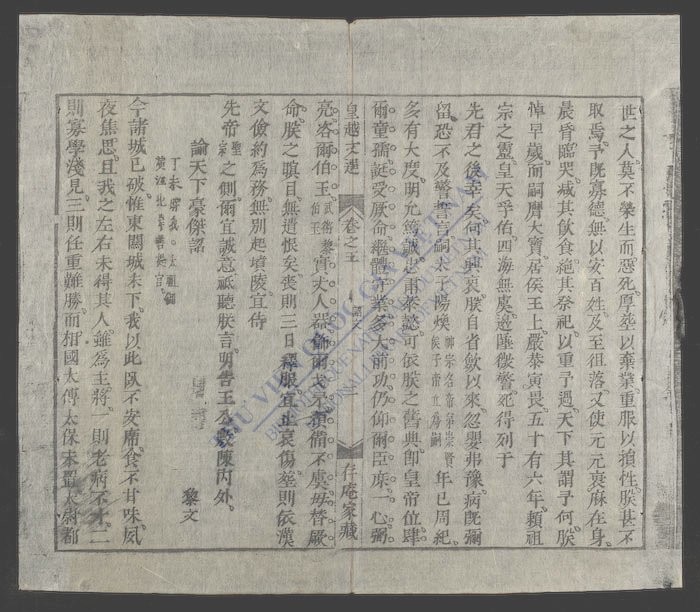 世之人莫不榮生而惡死厚塟以棄業重服以損性朕甚不
取焉予既寡德無以安百姓及至徂落又使元元衰麻在身
晨昏臨哭減其飲食絶其祭祀以重予過天下其謂予何朕
悼早歲而嗣膺大寶居侯王上嚴恭寅畏五十有六年賴祖
宗之靈皇天孚佑四海無虞邊陲微警死得列于
先君之後幸矣何其興哀朕自省歛以來忽嬰弗豫病既彌
留恐不及警誓言嗣太子陽煥 年已周紀
多有大度明允篤誠忠肅恭懿可依朕之舊典即皇帝位肆
爾童孺誕受厥命繼體守業多大前功仍仰爾臣庶一心弼
亮咨爾伯玉 實丈人器飭爾戈矛預備不虞毋替厥
命朕之瞑目無遺恨矣喪則三日釋服宜止哀傷塟則依漢
文儉約爲務無別起墳陵宜侍
先帝之側爾宜誠意祗聽朕言明告王公敷陳內外
諭天下豪傑詔 黎文
今諸城已破惟東關城未下我以此臥不安席食不甘味夙
夜焦思且我之左右未得其人雖爲主將一則老病不才二
則寡學淺見三則任重難勝而相國太傅太保未置太尉都
皇越文選 卷之五 詔文 存庵家藏
THƯ VIỆN QUỐC GIA VIỆT NAM
NATIONAL LIBRARY OF VIETNAM